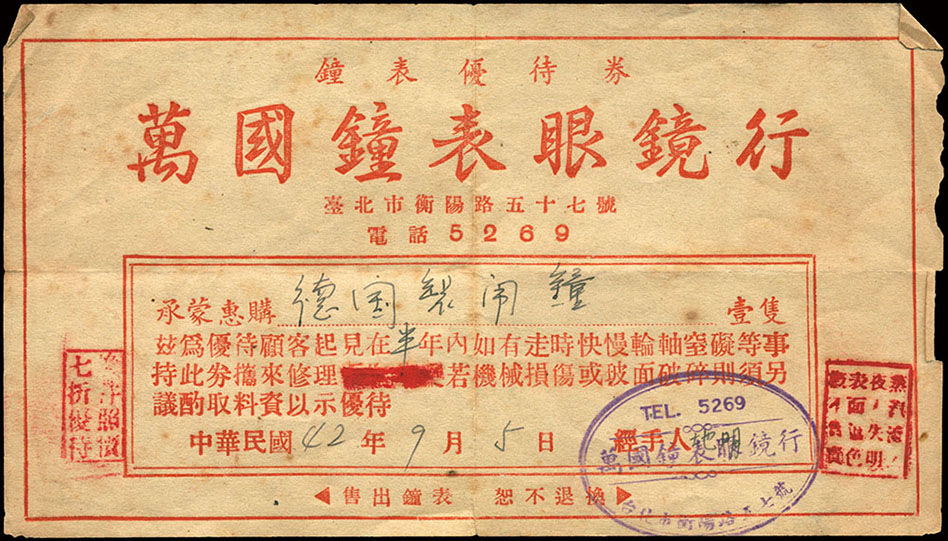 鐘表優待券
萬國鐘表眼鏡行
臺北市衡陽路五十七號
電話5269
承蒙惠購 德国製闹鐘 壹隻
玆爲優待顧客起見在半年內如有走時快慢輪軸窒礙等事
持此券攜來修理 若機械損傷或玻面破碎則須另
議酌取料資以示優待
中華民國42年9月5日 經手人
◀售出鐘表 恕不退換▶
七折優待
TEL. 5269
萬國鐘表眼鏡行
台北市衡陽路五七號